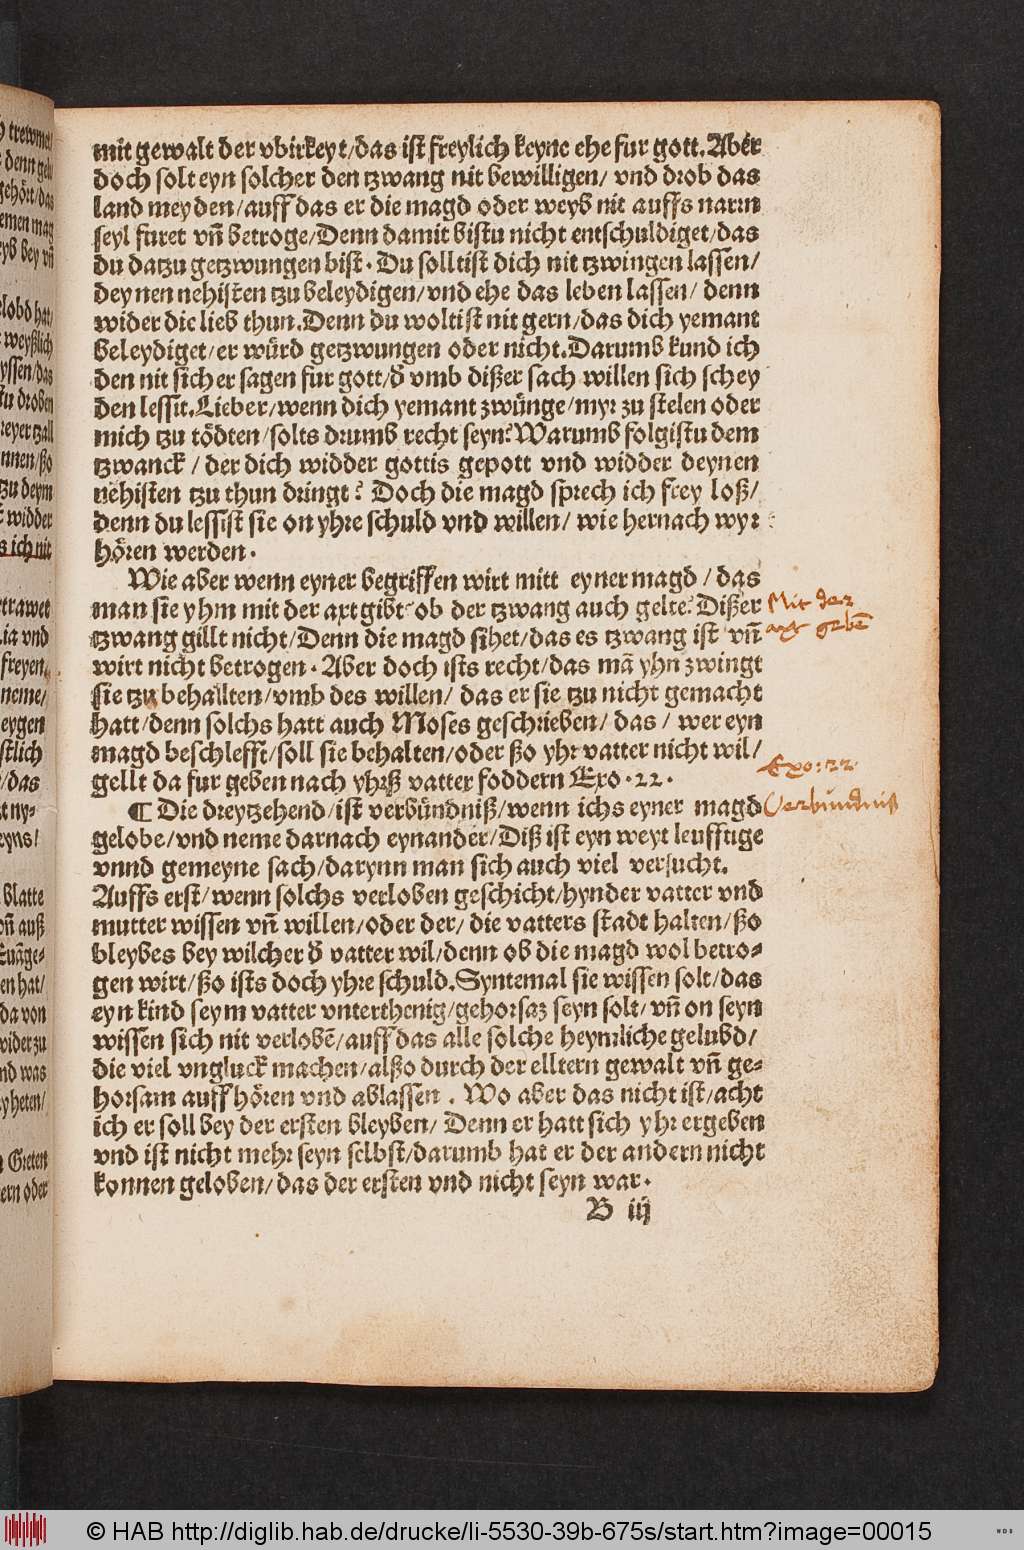 mit gewalt der vbirkeyt/das ist freylich keyne ehe fur gott. Aber
doch solt eyn solcher den tzwang nit bewilligen/ vnd drob das
land meyden/auff das er die magd oder weyb nit auffs narrn
seyl furet vn̄ betroge/Denn damit bistu nicht entschuldiget/das
du datzu getzwungen bist. Du solltist dich nit tzwingen lassen/
deynen nehisten tzu beleydigen/vnd ehe das leben lassen/ denn
wider die lieb thun. Denn du woltist nit gern/das dich yemant
beleydiget/er würd getzwungen oder nicht. Darumb kund ich
den nit sicher sagen fur gott/d̄ vmb dißer sach willen sich schey
den lessit. Lieber/wenn dich yemant zwünge/myr zu stelen oder
mich tzu tödten/solts drumb recht seyn? Warumb folgistu dem
tzwanck / der dich widder gottis gepott vnd widder deynen
nehisten tzu thun dringt? Doch die magd sprech ich frey loß/
denn du lessist sie on yhre schuld vnd willen/ wie hernach wyr
hören werden.
Wie aber wenn eyner begriffen wirt mitt eyner magd / das
man sie yhm mit der axt gibt ob der tzwang auch gelte? Dißer
tzwang gillt nicht/Denn die magd sihet/das es tzwang ist vn̄
wirt nicht betrogen. Aber doch ists recht/das mā yhn zwingt
sie tzu behallten/vmb des willen/ das er sie tzu nicht gemacht
hatt/denn solchs hatt auch Moses geschrieben/ das / wer eyn
magd beschlefft/soll sie behalten/oder ßo yhr vatter nicht wil/
gellt da fur geben nach yhrß vatter foddern Exo. 22.
¶ Die dreytzehend/ist verbündniß/wenn ichs eyner magd
gelobe/vnd neme darnach eynander/Diß ist eyn weyt leufftige
vnnd gemeyne sach/darynn man sich auch viel versucht.
Auffs erst/wenn solchs verloben geschicht/hynder vatter vnd
mutter wissen vn̄ willen/oder der/ die vatters stadt halten/ßo
bleybes bey wilcher d̄ vatter wil/denn ob die magd wol betro-
gen wirt/ßo ists doch yhre schuld. Syntemal sie wissen solt/das
eyn kind seym vatter vnterthenig/gehorsaz seyn solt/vn̄ on seyn
wissen sich nit verlobē/auff das alle solche heymliche gelubd/
die viel vngluck machen/alßo durch der elltern gewalt vn̄ ge-
horsam auffhören vnd ablassen. Wo aber das nicht ist/acht
ich er soll bey der ersten bleyben/ Denn er hatt sich yhr ergeben
vnd ist nicht mehr seyn selbst/darumb hat er der andern nicht
konnen geloben/das der ersten vnd nicht seyn war.
B iij
Mit der
axt gebē
Exo: 22
Verbündniß
© HAB http://diglib.hab.de/drucke/li-5530-39b-675s/start.htm?image=00015